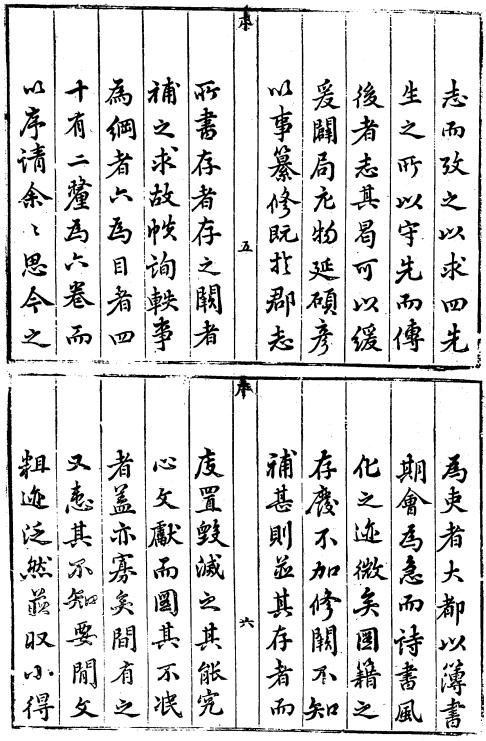 志而攷之以求四先
生之所以守先而傳
後者志其曷可以緩
爰闢局庀物延碩彥
以事纂修既於郡志
五
所書存者存之闕者
補之求故帙詢軼事
為綱者六為目者四
十有二釐為六卷而
以序請余〻思今之
為吏者大都以簿書
期會為急而詩書風
化之迹微矣圖籍之
存廢不加修闕不知
補甚則並其存者而
六
庋置毀滅之其能究
心文獻而圖其不泯
者蓋亦寡矣間有之
又患其不知要閒文
粗迹泛然並收小得